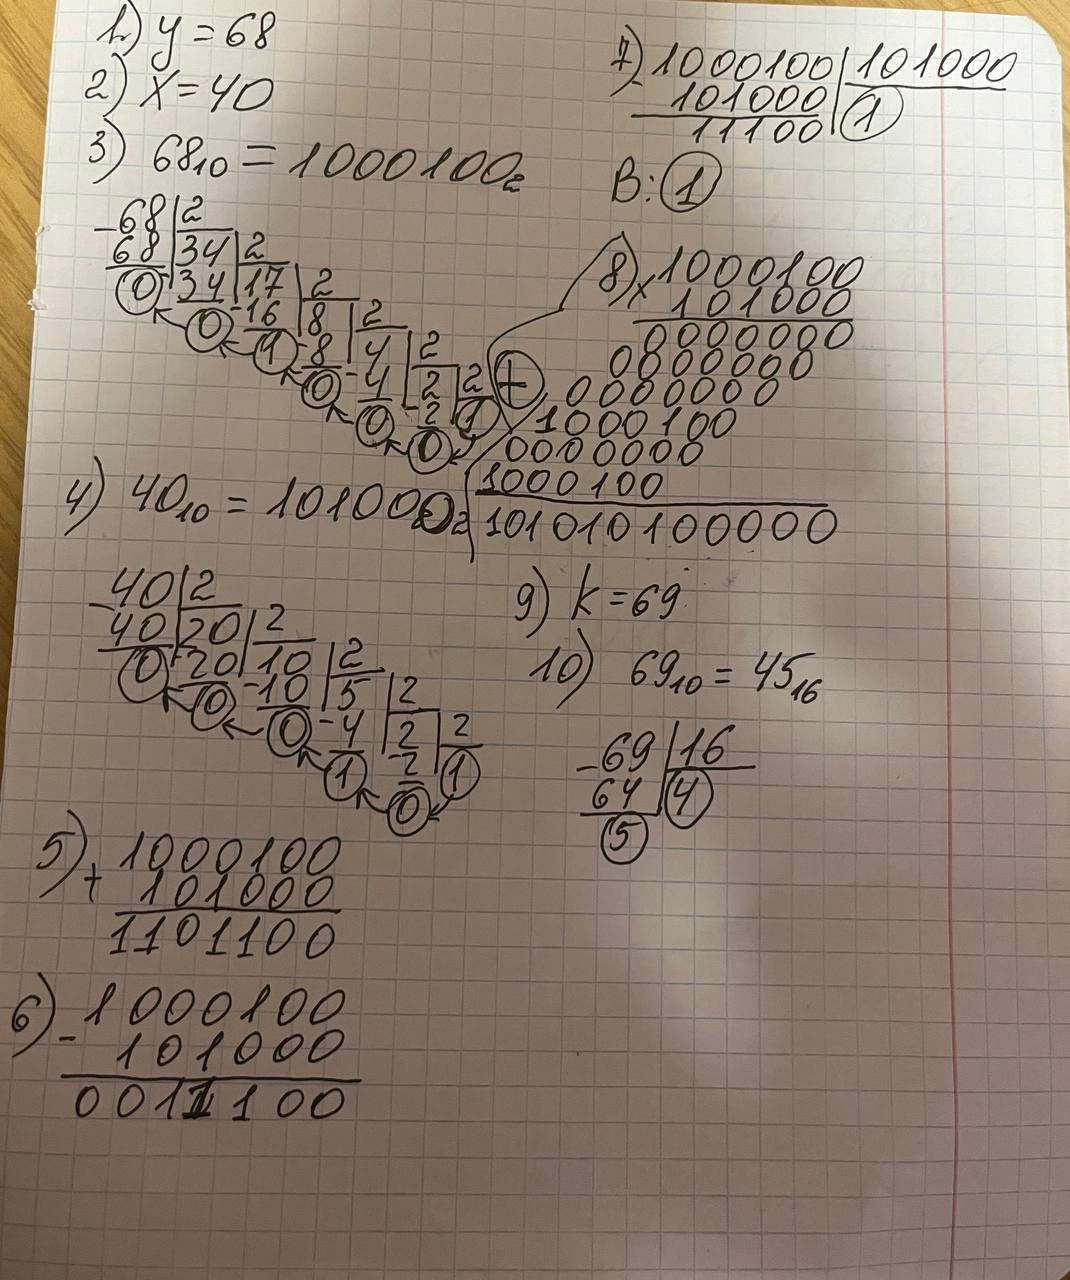 1) y = 68
2) x = 40
3) 68₁₀ = 1000100₂
-68 | 2
68 | 34 | 2
0 -34 | 17 | 2
0 -16 | 8 | 2
1 -8 | 4 | 2
0 -4 | 2 | 2
0 -2 | 1
0
4) 40₁₀ = 101000₂
-40 | 2
40 | 20 | 2
0 -20 | 10 | 2
0 -10 | 5 | 2
0 -4 | 2 | 2
1 -2 | 1
0
5) + 1000100
101000
1101100
6) - 1000100
101000
0011100
7) - 1000100 | 101000
101000 | 1
11100
В: 1
8) x 1000100
101000
0000000
0000000
+ 0000000
1000100
0000000
1000100
101010100000
9) k = 69
10) 69₁₀ = 45₁₆
-69 | 16
64 | 4
5